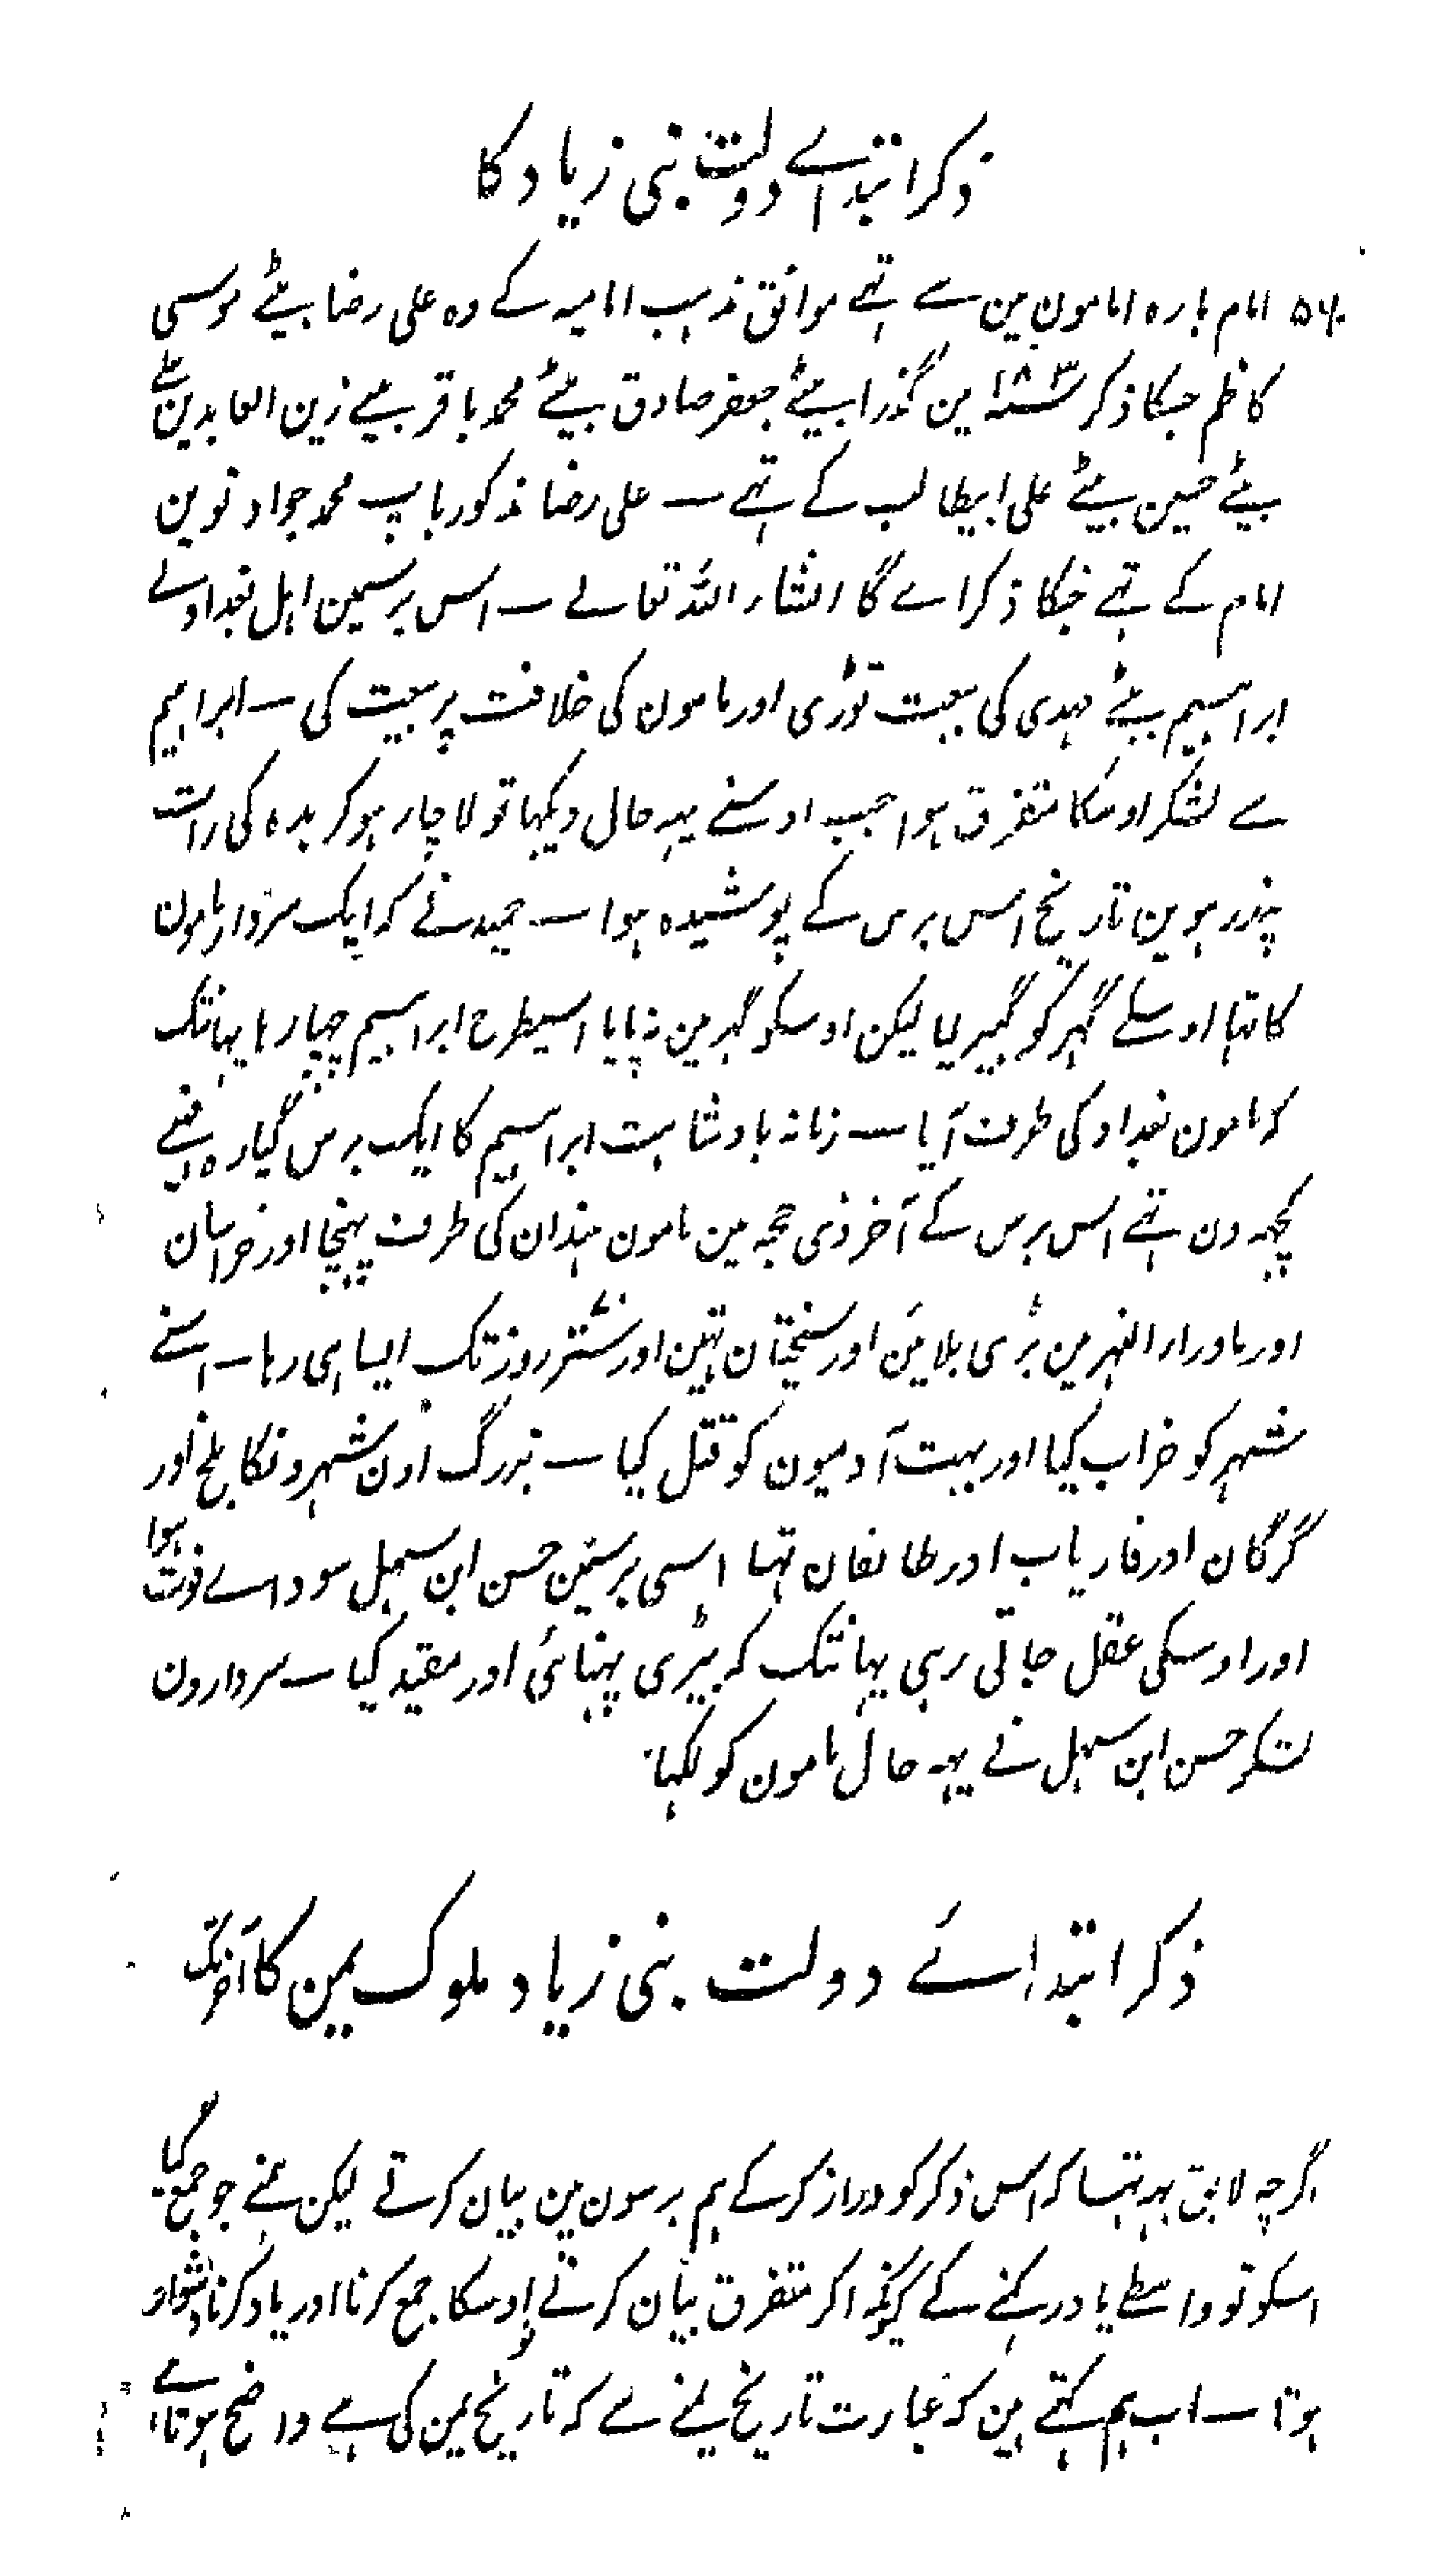 ذکر ابتداے دولت بنی زیاد کا
امام بارہ امامون مین سے تہے موافق مذہب امامیہ کے وہ علی رضا بیٹے موسی
کاظم جسکا ذکر سنہ ۱۸۳ مین گذرا بیٹے جعفر صادق بیٹے محمد باقر بیٹے زین العابدین کے
بیٹے حسین بیٹے علی ابیطالب کے تہے ۔ علی رضا مذکور باپ محمد جواد نوین
امام کے تہے جنکا ذکر اے گا انشاء اللہ تعالے ۔ اس برسمین اہل بغداد نے
ابراہیم بیٹے مہدی کی بیعت توڑی اور مامون کی خلافت پر بیعت کی ۔ ابراہیم
سے لشکر اوسکا متفرق ہوا جب اوسنے یہہ حال دیکہا تو لاچار ہو کر بدہ کی رات
پندرہوین تاریخ اس برس کے پوشیدہ ہوا ۔ حمید نے کہ ایک سردار مامون
کا تہا اوسکے گہر کو گہیر لیا لیکن اوسکو گہر مین نہ پایا اسیطرح ابراہیم چہپا رہا یہانتک
کہ مامون بغداد کی طرف آیا ۔ زمانہ بادشاہت ابراہیم کا ایک برس گیارہ مہینے
کچہہ دن تہے اس برس کے آخر ذی حجہ مین مامون ہمدان کی طرف پہنچا اور خراسان
اور ماوراء النہر مین بڑی بلائین اور سختیان تہین اور ستر روز تک ایسا ہی رہا ۔ اسنے
شہر کو خراب کیا اور بہت آدمیون کو قتل کیا ۔ بزرگ اون شہرونکا بلخ اور
گرگان اور فاریاب اور طالقان تہا اسی برسمین حسن ابن سہل سوداے فوت ہوا
اور اوسکی عقل جاتی رہی یہانتک کہ بیڑی پہنائی اور مقید کیا ۔ سردارون
لشکر حسن ابن سہل نے یہہ حال مامون کو لکہا
ذکر ابتداےٴ دولت بنی زیاد ملوک یمن کا آخر تک
اگرچہ لایق یہہ تہا کہ اس ذکر کو دراز کر کے ہم برسون مین بیان کرتے لیکن ہمنے جو جمع کیا
اسکو تو واسطے یاد رکہنے کے کیونکہ اکر متفرق بیان کرتے تو اوسکا جمع کرنا اور یاد کرنا دشوار
ہوتا ۔ اب ہم کہتے ہین کہ عبارت تاریخ یمنے سے کہ تاریخ یمن کی ہے واضح ہوتا ہے